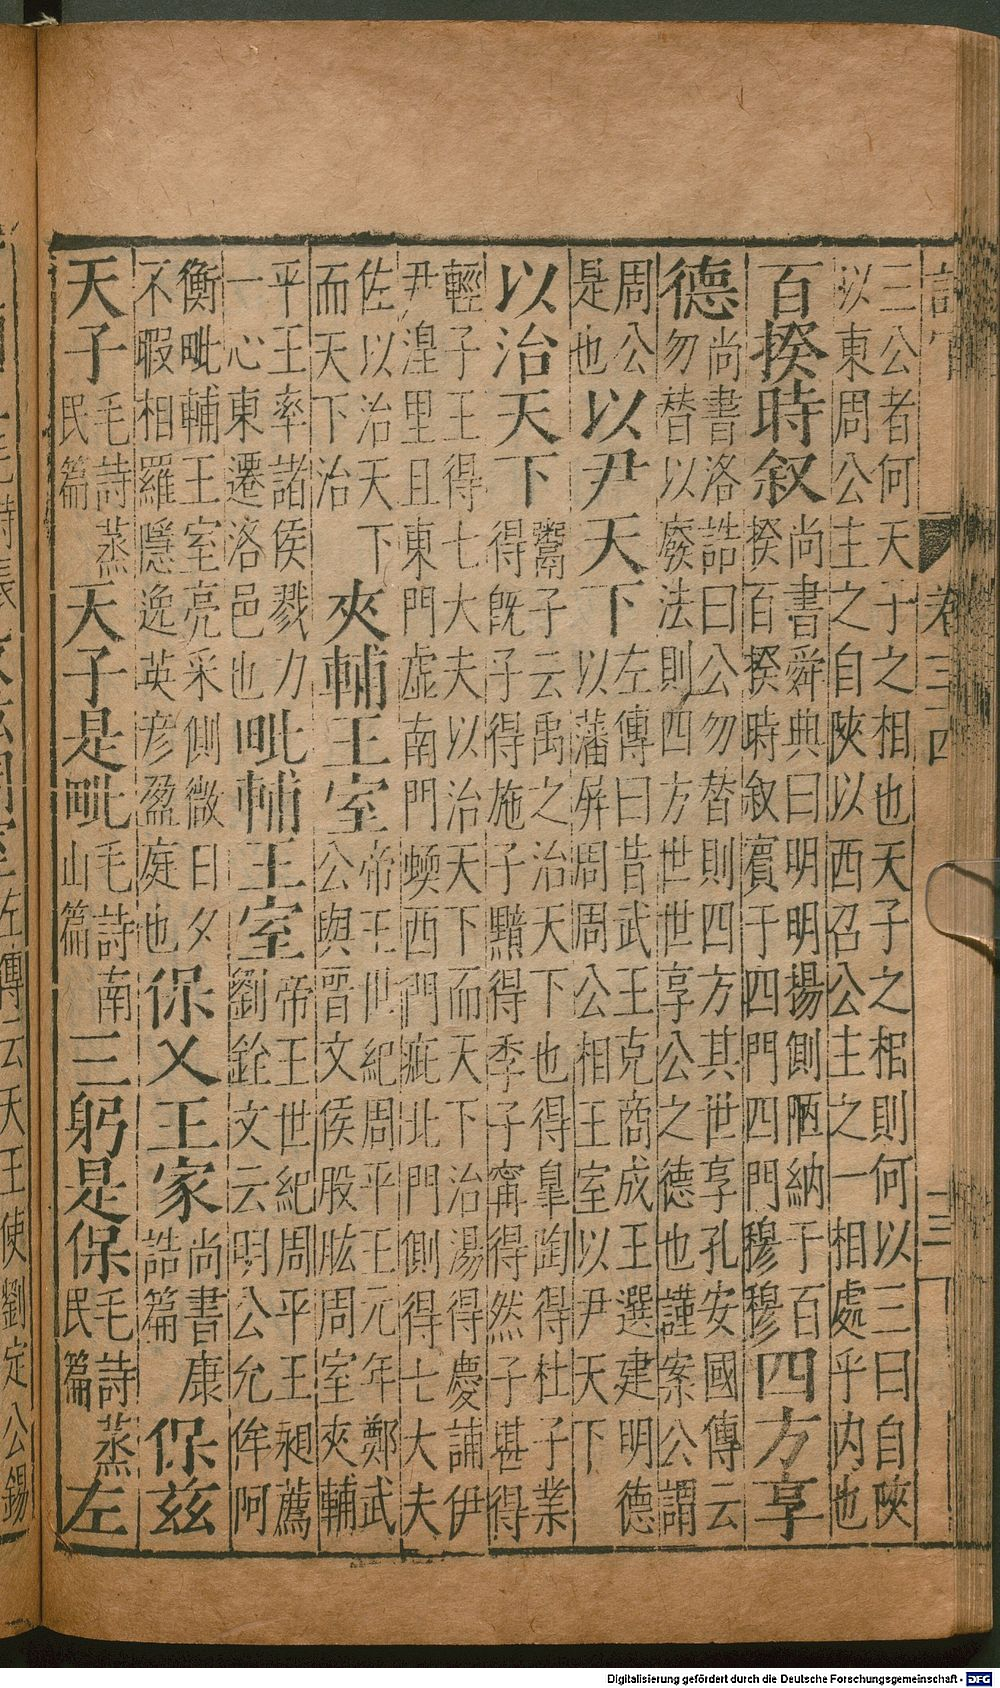 三公者何天子之相也天子之相則何以三曰自陜
以東周公主之自陜以西召公主之一相處乎内也
百揆時叙
尚書舜典曰明明揚側陋納于百
揆百揆時叙賓于四門四門穆穆
四方享
德
尚書洛誥曰公勿替則四方其世享孔安國傳云
勿替以廢法則四方世世享公之德也謹案公謂
周公
是也
以尹天下
左傳曰昔武王克商成王選建明德
以藩屏周周公相王室以尹天下
以治天下
鬻子云禹之治天下也得皐陶得杜子業
得旣子得施子黯得季子甯得然子堪得
輕子王得七大夫以治天下而天下治湯得慶誧伊
尹湟里且東門虛南門蝡西門疵北門側得七大夫
佐以治天下
而天下治
夾輔王室
帝王世紀周平王元年鄭武
公與晋文侯股肱周室夾輔
平王率諸侯戮力
一心東遷洛邑也
毗輔王室
帝王世紀周平王薦
劉銓文云明公允侔阿
衡毗輔王室亮采側微日夕
不暇相羅隱逸英彦盈庭也
保乂王家
尚書康
誥篇
保兹
天子
毛詩蒸
民篇
天子是毗
毛詩南
山篇
三躬是保
毛詩蒸
民篇
左
卷三四
二三
左傳云天王使劉定公錫
Digitalisierung gefördert durch die Deutsche Forschungsgemeinschaft - DFG